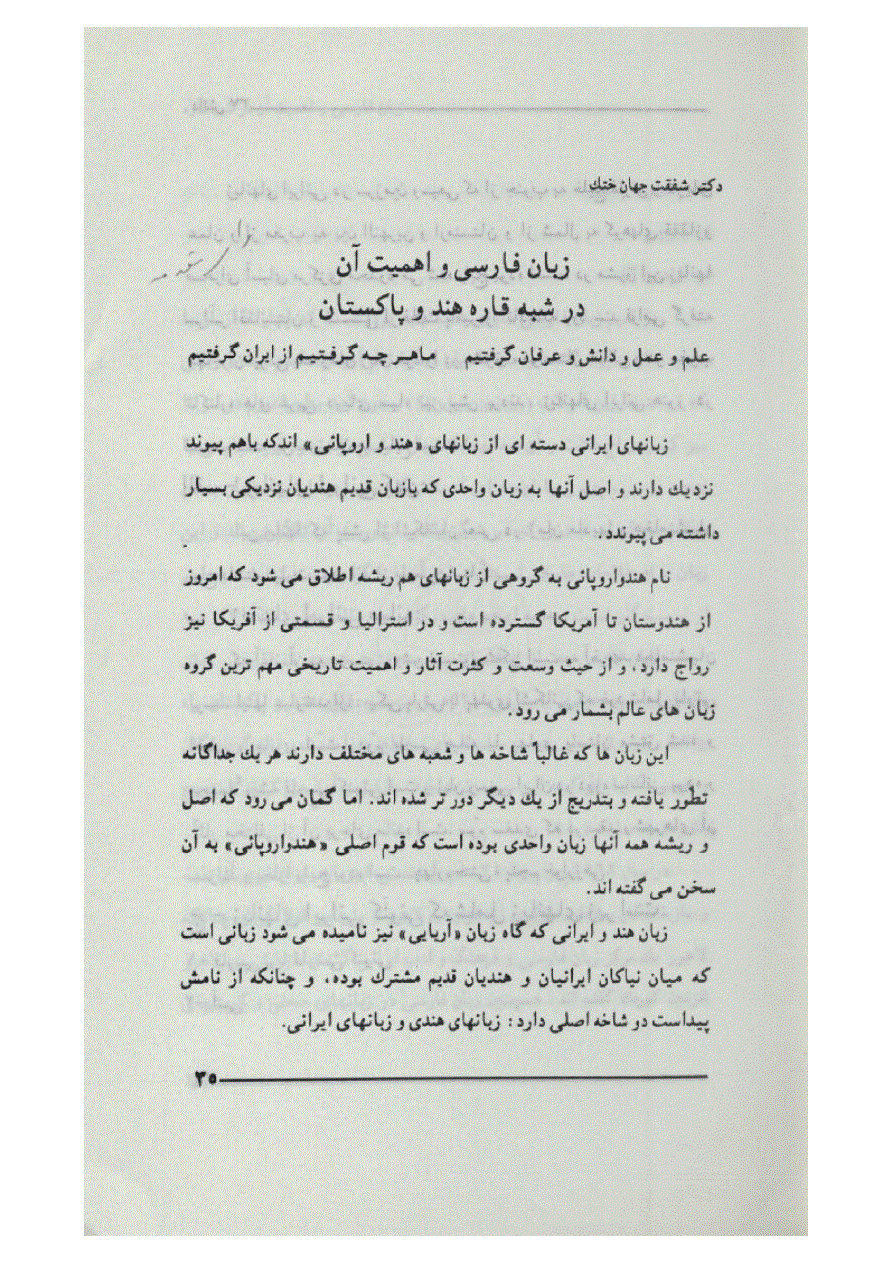 دکتر شفقت جهان ختك
زبان فارسی و اهمیت آن
در شبه قاره هند و پاکستان
علم و عمل ر دانش و عرفان گرفتیم ماهر چه گرفتیم از ایران گرفتیم
زبانهای ایرانی دسته ای از زبانهای «هند و اروپائی» اندکه باهم پیوند
نزدیك دارند و اصل آنها به زبان واحدی که بازبان قدیم هندیان نزدیکی بسیار
داشته می پیوندد.
نام هندواروپائی به گروهی از زبانهای هم ریشه اطلاق می شود که امروز
از هندوستان تا آمریکا گسترده است و در استرالیا و قسمتی از آفریکا نیز
رواج دارد، و از حیث وسعت و کثرت آثار و اهمیت تاریخی مهم ترین گروه
زبان های عالم بشمار می رود.
این زبان ها که غالباً شاخه ها و شعبه های مختلف دارند هر یك جداگانه
تطوّر یافته و بتدریج از یك دیگر دور تر شده اند. اما گمان می رود که اصل
و ریشه همه آنها زبان واحدی بوده است که قوم اصلی «هندواروپائی» به آن
سخن می گفته اند.
زبان هند و ایرانی که گاه زبان «آریایی» نیز نامیده می شود زبانی است
که میان نیاکان ایرانیان و هندیان قدیم مشترك بوده، و چنانکه از نامش
پیداست دو شاخه اصلی دارد: زبانهای هندی و زبانهای ایرانی.
۳۵